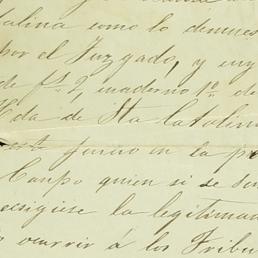 talina como lo demues
por el Juzgado, y
de fs. 2, cuaderno 1º de
Hda de Sta Catalina
este Juicio en la p
Campo quien si se
ecsigiese la legitima
ocurrir á los Tribu